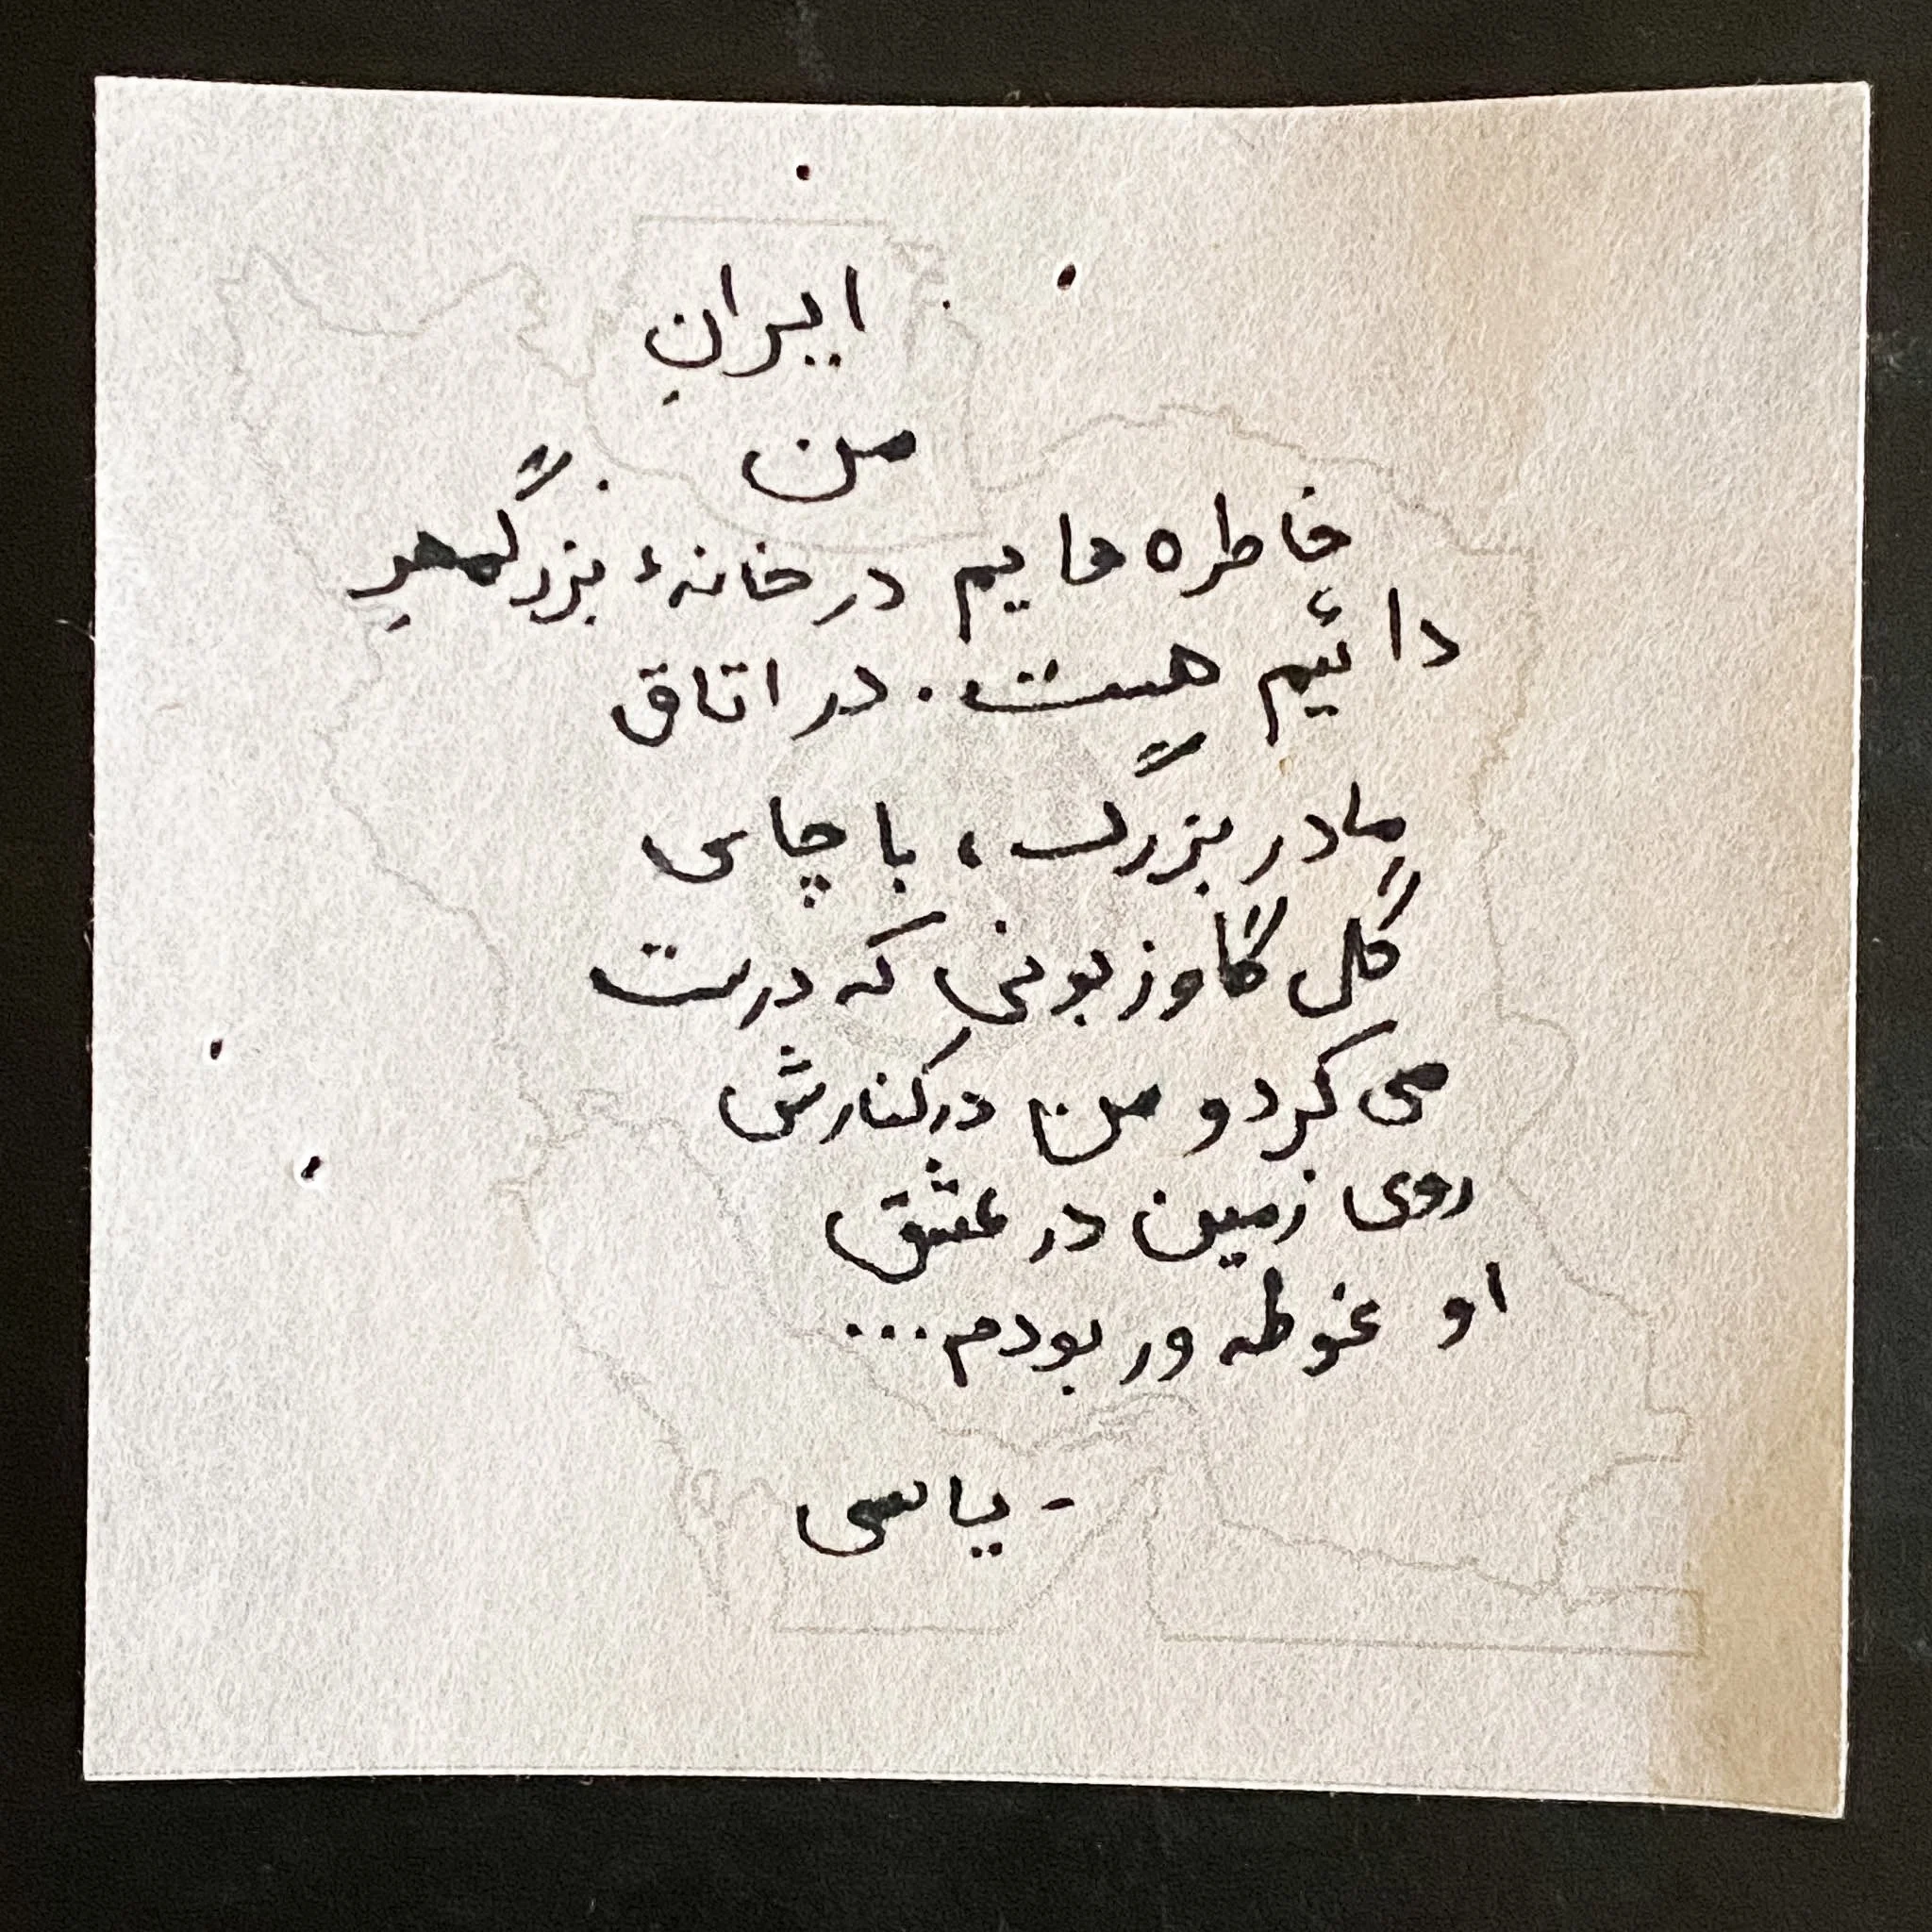 ایرانِ
من
خاطره هایم در خانهٔ بزرگمهرِ
دائیم هست. در اتاق
مادر بزرگ، با چای
گل گاوزبونیِ که درست
می کرد و من در کنارش
روی زمین در عشق
او غوطه ور بودم...
- یاسی